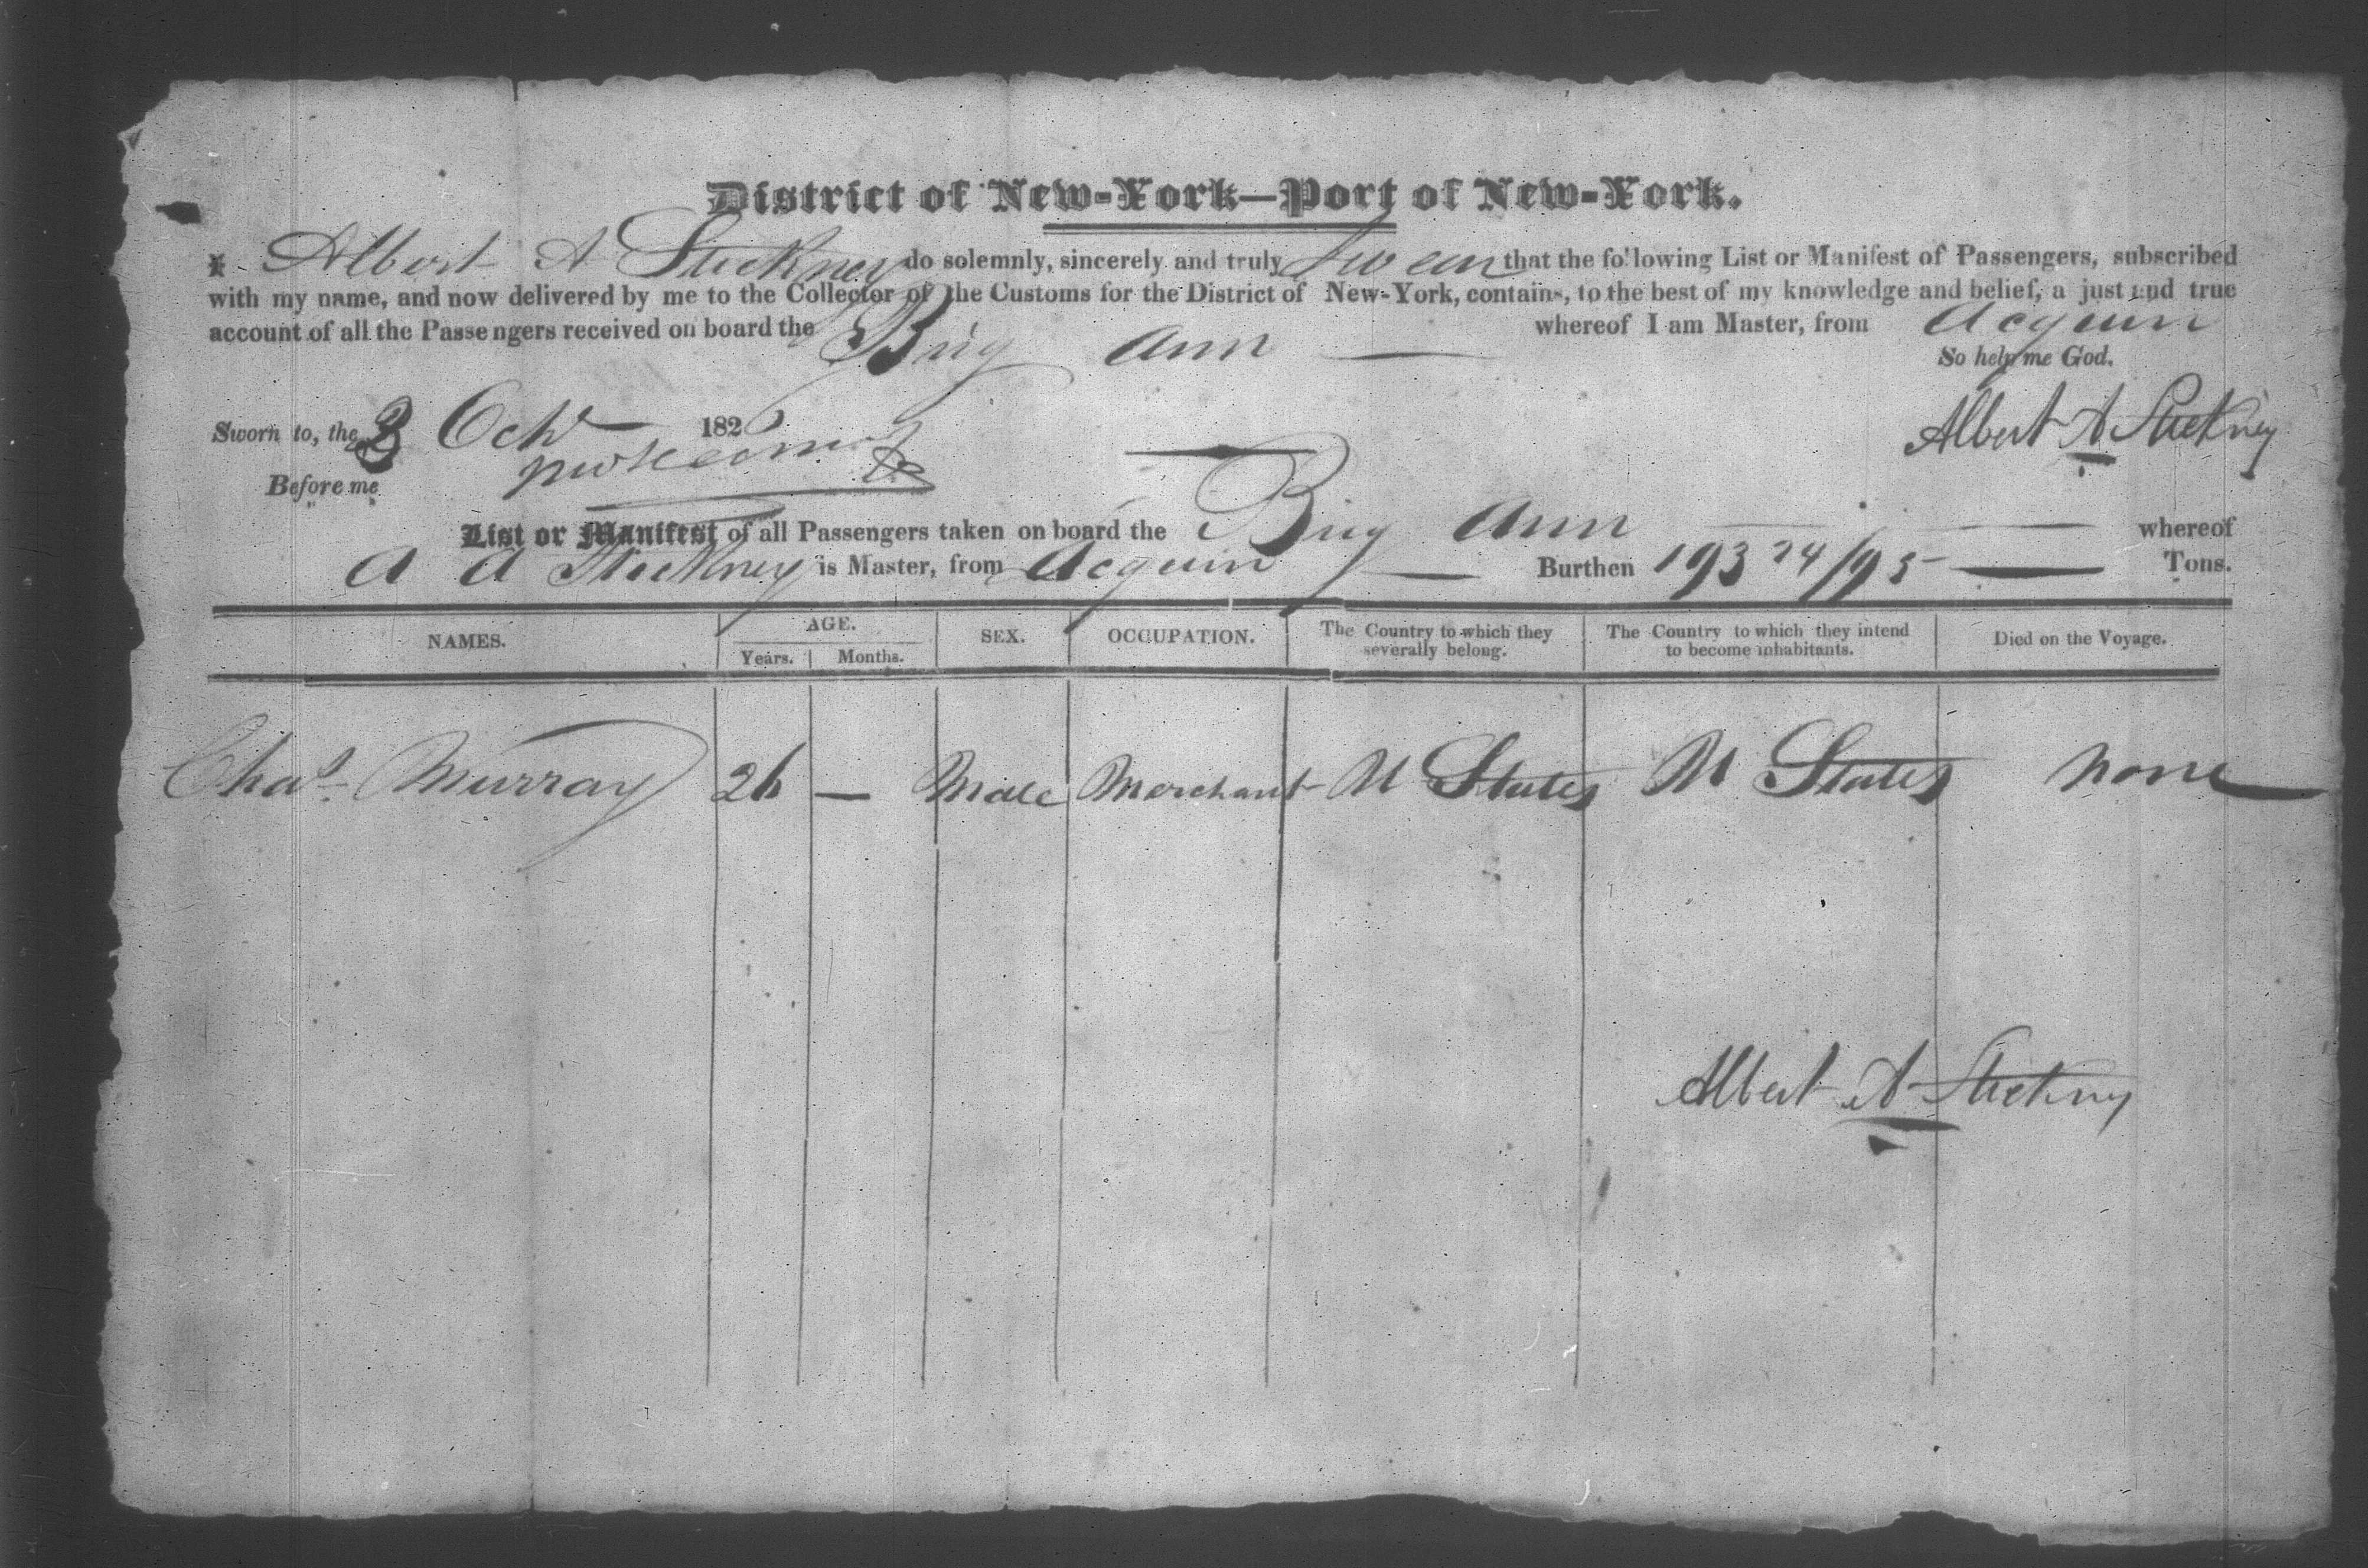 District of New-York—Port of New-York.
I Albert A Stickney do solemnly, sincerely and truly Swear that the following List or Manifest of Passengers, subscribed
with my name, and now delivered by me to the Collector of the Customs for the District of New-York, contains, to the best of my knowledge and belief, a just and true
account of all the Passengers received on board the Brig Ann — whereof I am Master, from Acquin
So help me God.
Sworn to, the 3 Octr 1826
Albert A Stickney
Before me
List or Manifest of all Passengers taken on board the Brig Ann — whereof
A A Stickney is Master, from Acquin — Burthen 193 74/95 — Tons.
NAMES. AGE. SEX. OCCUPATION. The Country to which they severally belong. The Country to which they intend to become inhabitants. Died on the Voyage.
Years. Months.
Chas. Murray 26 — Male Merchant U States U States None
Albert A Stickney